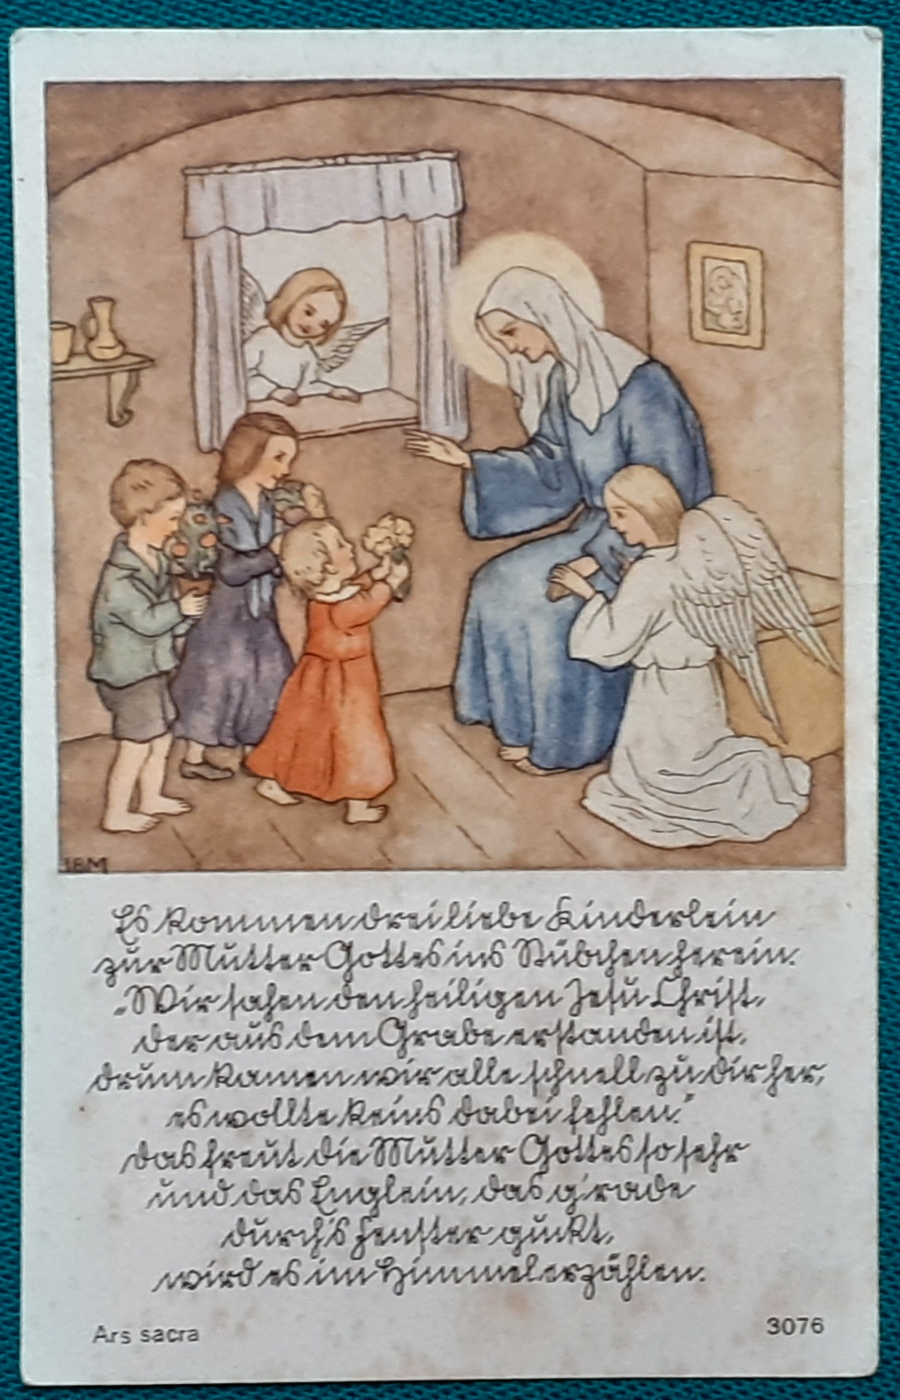 IBM
Es kommen drei liebe Kinderlein
zur Mutter Gottes ins Stübchen herein.
„Wir sahen den heiligen Jesu Christ,
der aus dem Grabe erstanden ist,
drum kamen wir alle schnell zu dir her,
es wollte keins dabei fehlen.“
das freut die Mutter Gottes so sehr
und das Englein, das g'rade
durch's Fenster guckt,
wird es im Himmel erzählen.
Ars sacra
3076